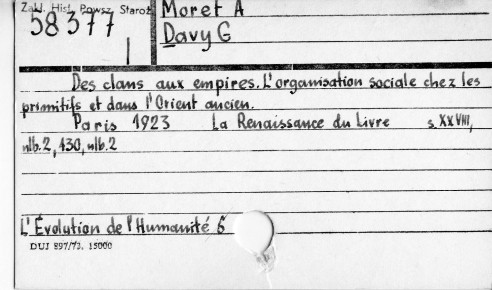 Zakł. Hist. Powsz. Staroż.
58377
Moret A
Davy G
Des clans aux empires. L'organisation sociale chez les
primitifs et dans l'Orient ancien.
Paris 1923 La Renaissance du Livre s. XXVIII,
nlb. 2, 430, nlb. 2
L'Évolution de l'Humanité 6
DUJ 897/73. 15000